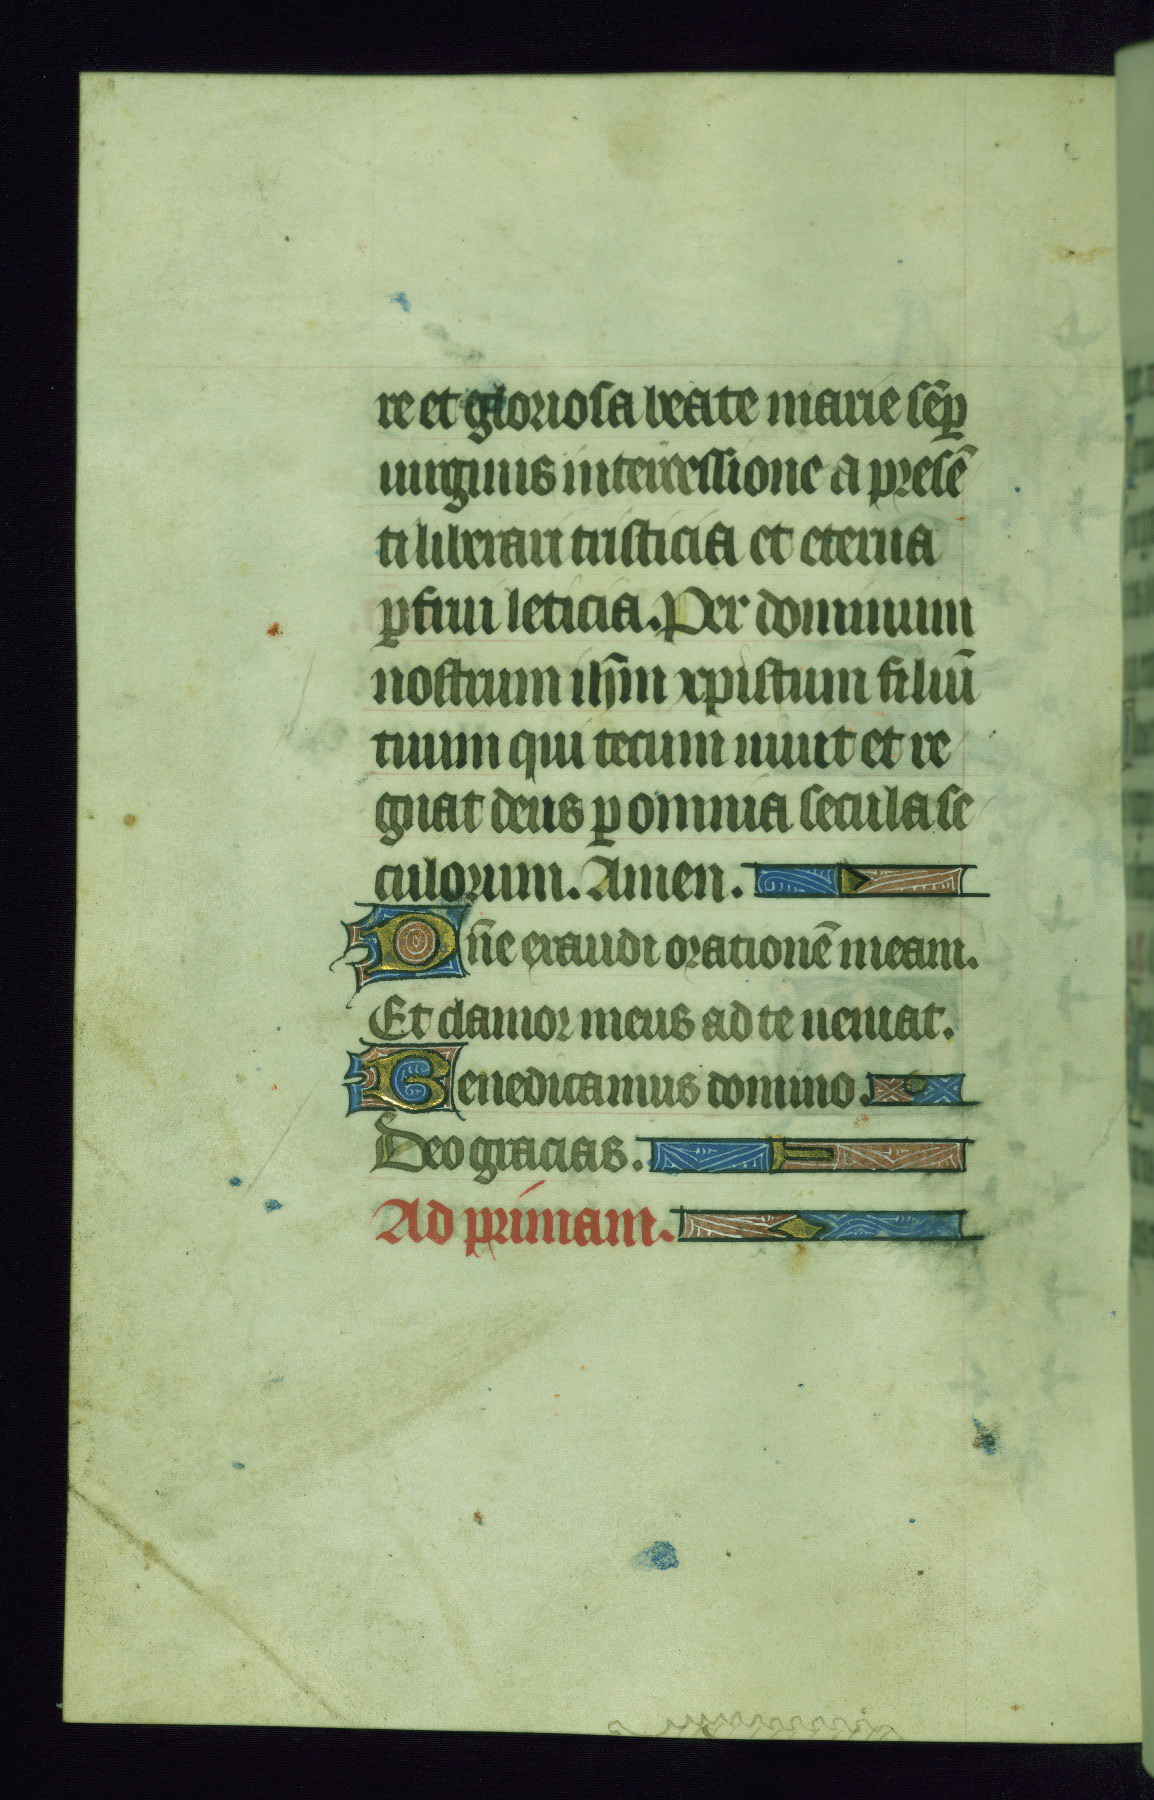 re et gloriosa beate marie sēꝑ
uirginis intercessione a presē
ti liberari tristicia et eterna
ꝑfrui leticia. Per dominum
nostrum ihm̄ xpistum filiū
tuum qui tecum uiuit et re
gnat deus ꝑ omnia secula se
culorum. Amen.
Dn̄e exaudi orationē meam.
Et clamor meus ad te ueniat.
Benedicamus domino.
Deo gracias.
Ad primam.